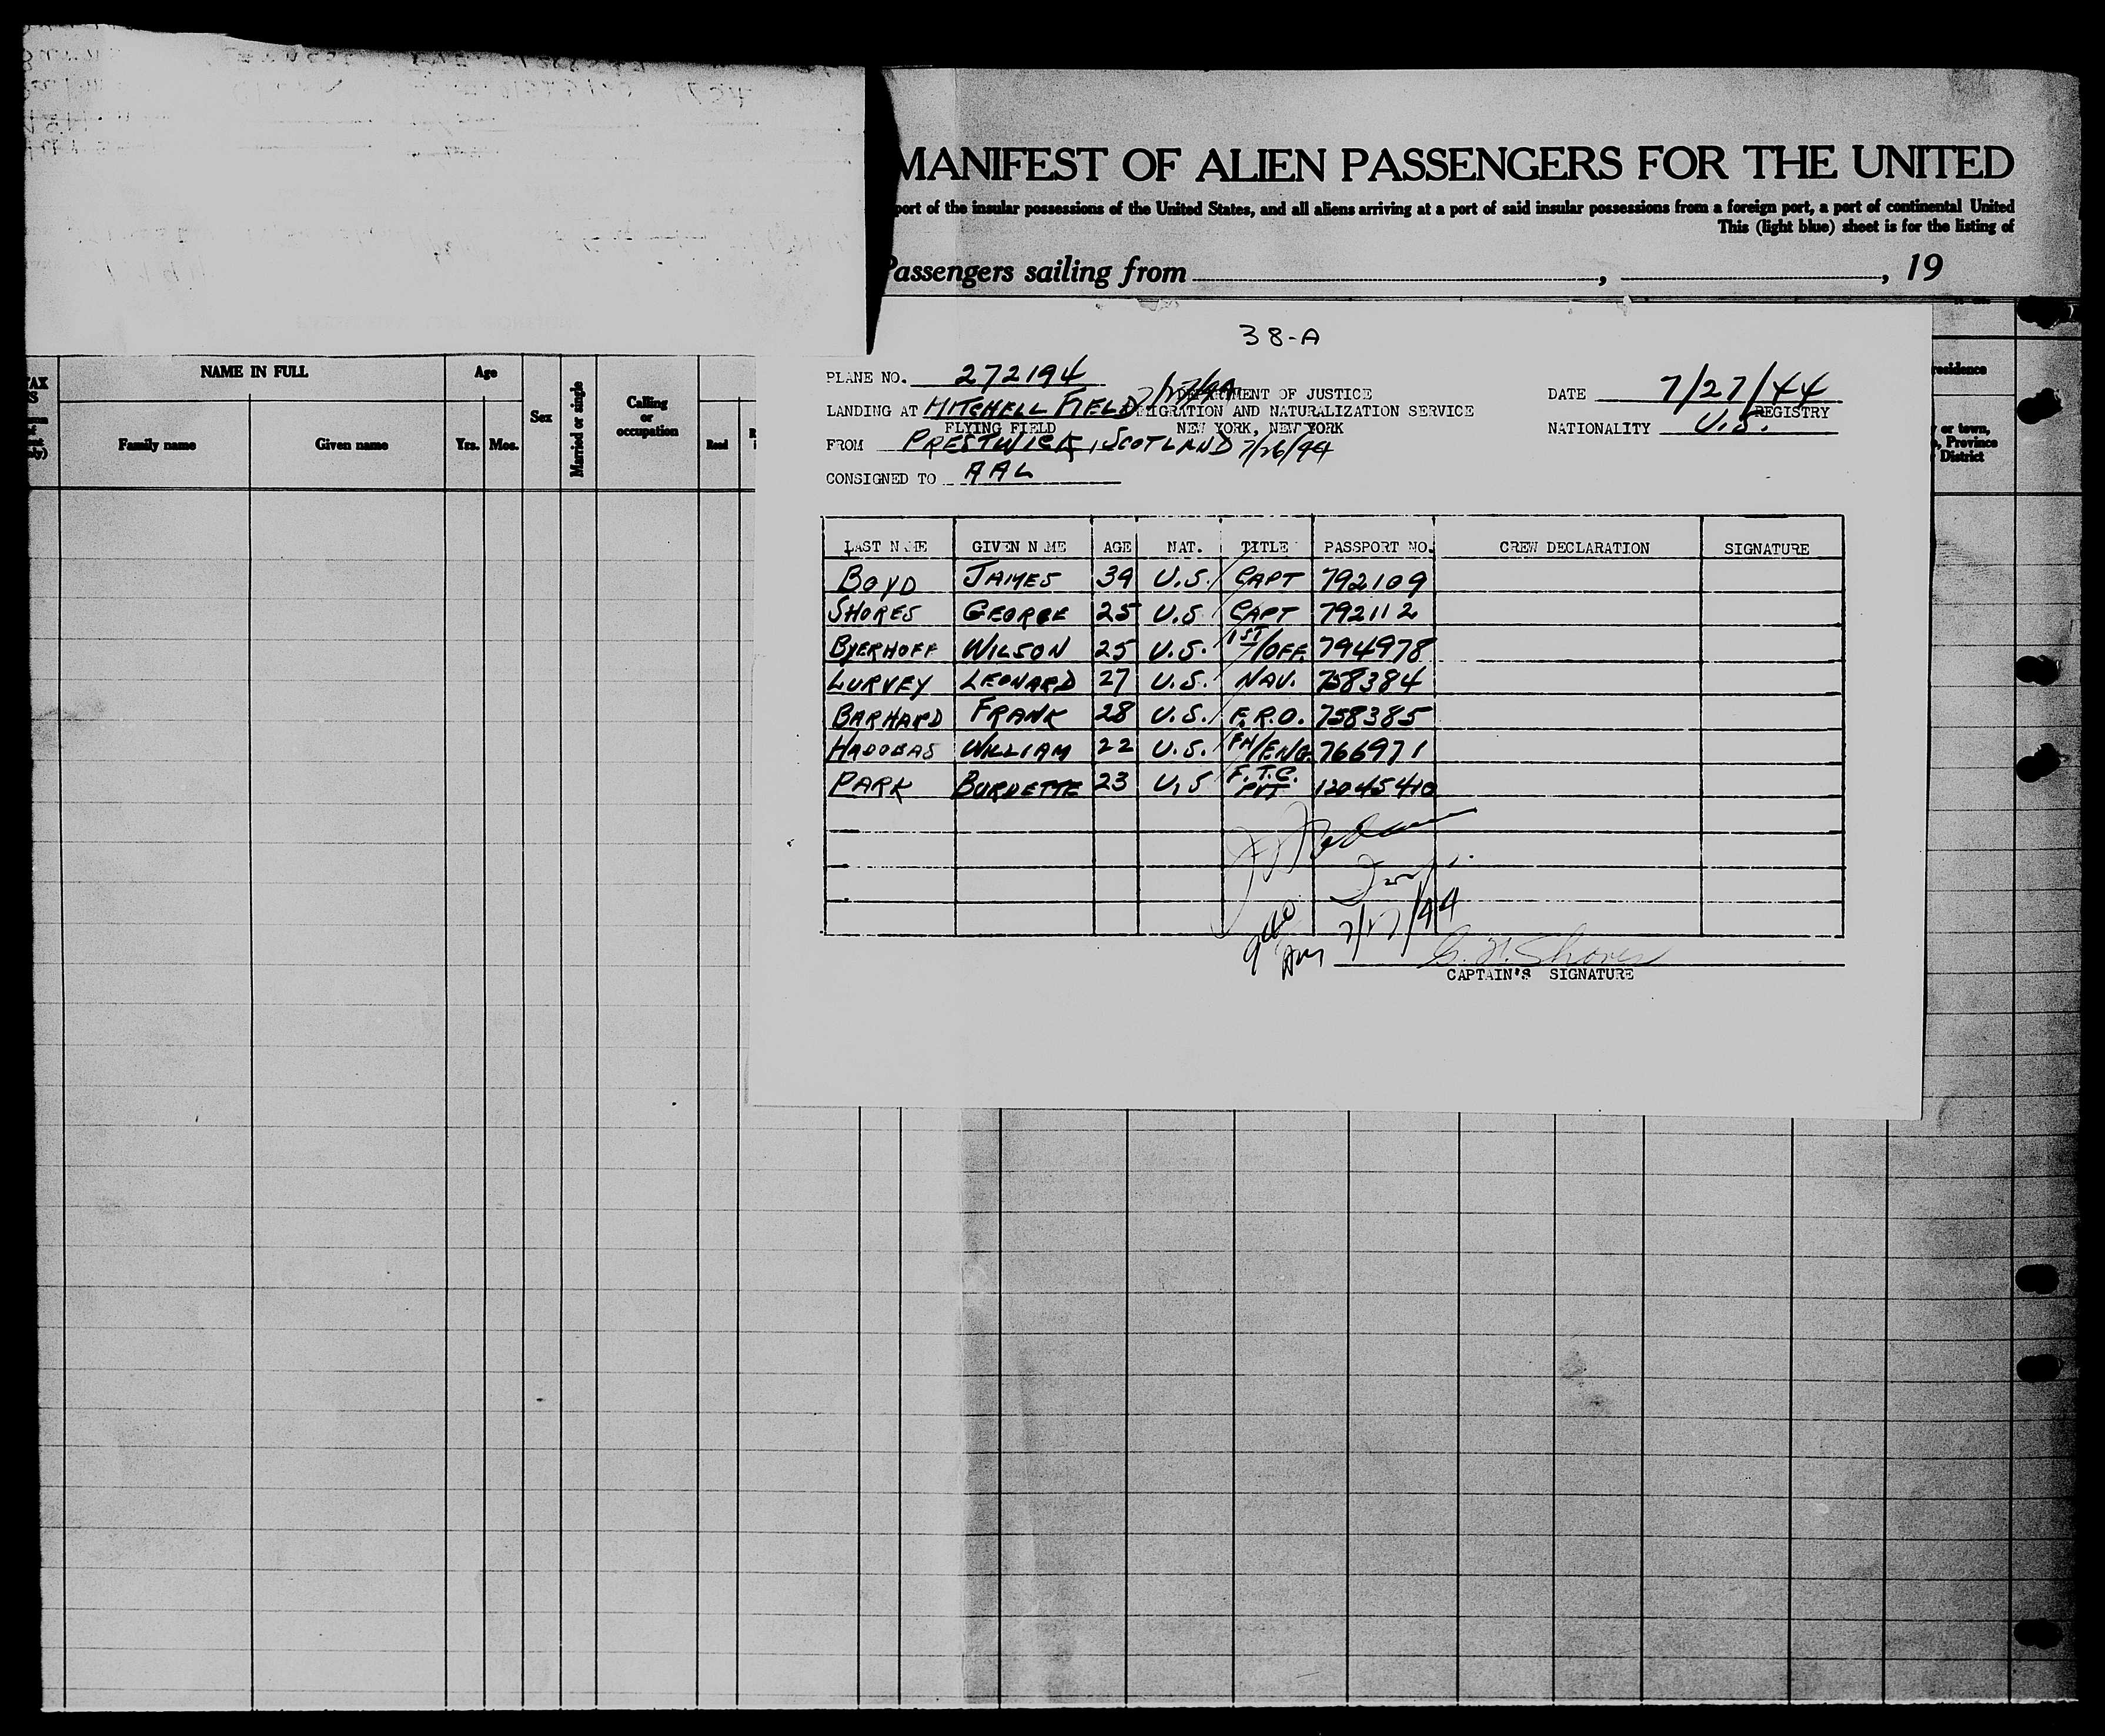 MANIFEST OF ALIEN PASSENGERS FOR THE UNITED
port of the insular possessions of the United States, and all aliens arriving at a port of said insular possessions from a foreign port, a port of continental United
This (light blue) sheet is for the listing of
Passengers sailing from , , 19
NAME IN FULL
Age
Sex
Married or single
Calling
or
occupation
Family name
Given name
Yrs.
Mos.
Read
residence
or town,
Province
District
38-A
PLANE NO. 272194
DEPARTMENT OF JUSTICE
DATE 7/27/44
LANDING AT MITCHELL FIELD 7/27/44 IMMIGRATION AND NATURALIZATION SERVICE
REGISTRY
FLYING FIELD NEW YORK, NEW YORK
NATIONALITY U.S.
FROM PRESTWICK, SCOTLAND 7/26/44
CONSIGNED TO AAL
LAST NAME GIVEN NAME AGE NAT. TITLE PASSPORT NO. CREW DECLARATION SIGNATURE
BOYD JAMES 39 U.S. CAPT 792109
SHORES GEORGE 25 U.S CAPT 792112
BYERHOFF WILSON 25 U.S. 1ST/OFF. 794978
LURVEY LEONARD 27 U.S. NAV. 758384
BARHARD FRANK 28 U.S. F.R.O. 758385
HADOBAS WILLIAM 22 U.S. FH/ENG. 766971
PARK BURDETTE 23 U.S F.T.C. PVT 12045410
7/27/44
G. H. Shores
CAPTAIN'S SIGNATURE